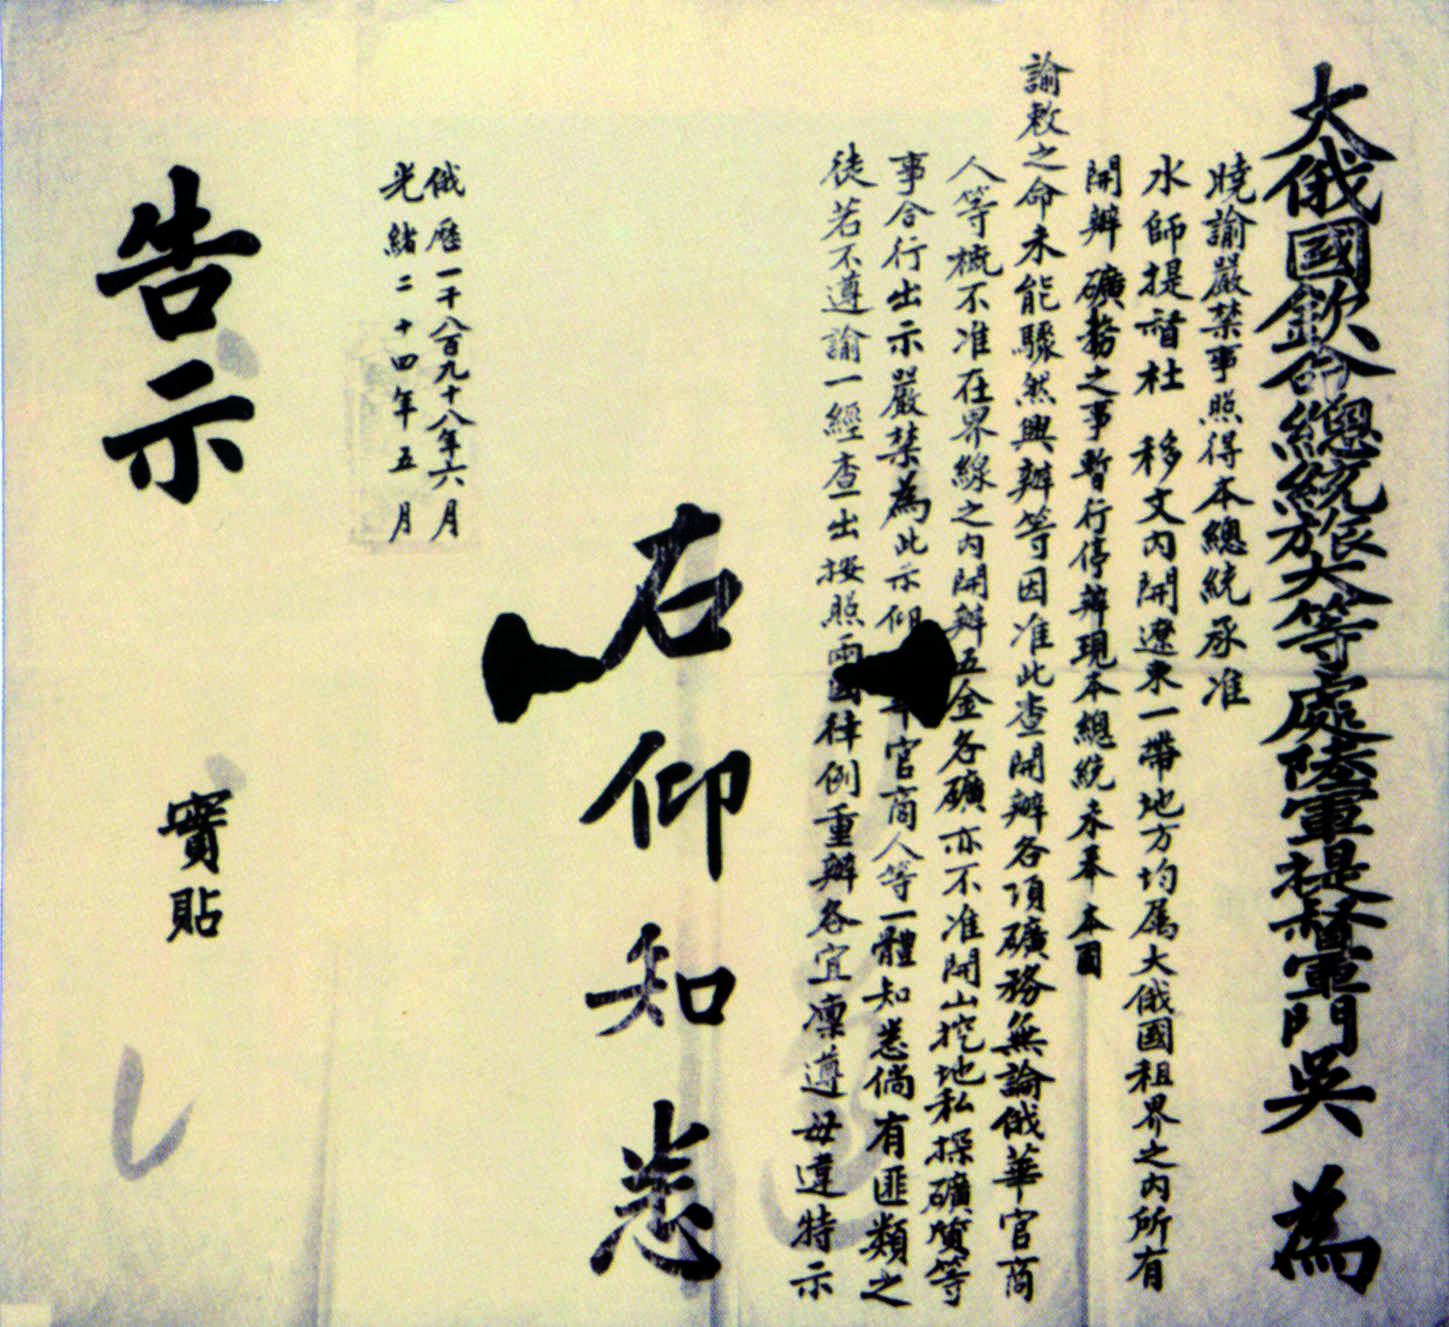 大俄國欽命總統旅大等處陸軍提督軍門吳 為
曉諭嚴禁事照得本總統承准
水師提督杜 移文內開遼東一帶地方均屬大俄國租界之內所有
開辦礦務之事暫行停辦現本總統未奉本國
諭敕之命未能驟然興辦等因准此查開辦各項礦務無論俄華官商
人等概不准在界線之內開辦五金各礦亦不准開山挖地私採礦質等
事合行出示嚴禁為此示仰 官商人等一體知悉倘有匪類之
徒若不遵諭一經查出按照兩國律例重辦各宜凜遵毋違特示
右仰知悉
俄曆一千八百九十八年六月
光緒二十四年五月
告示
實貼